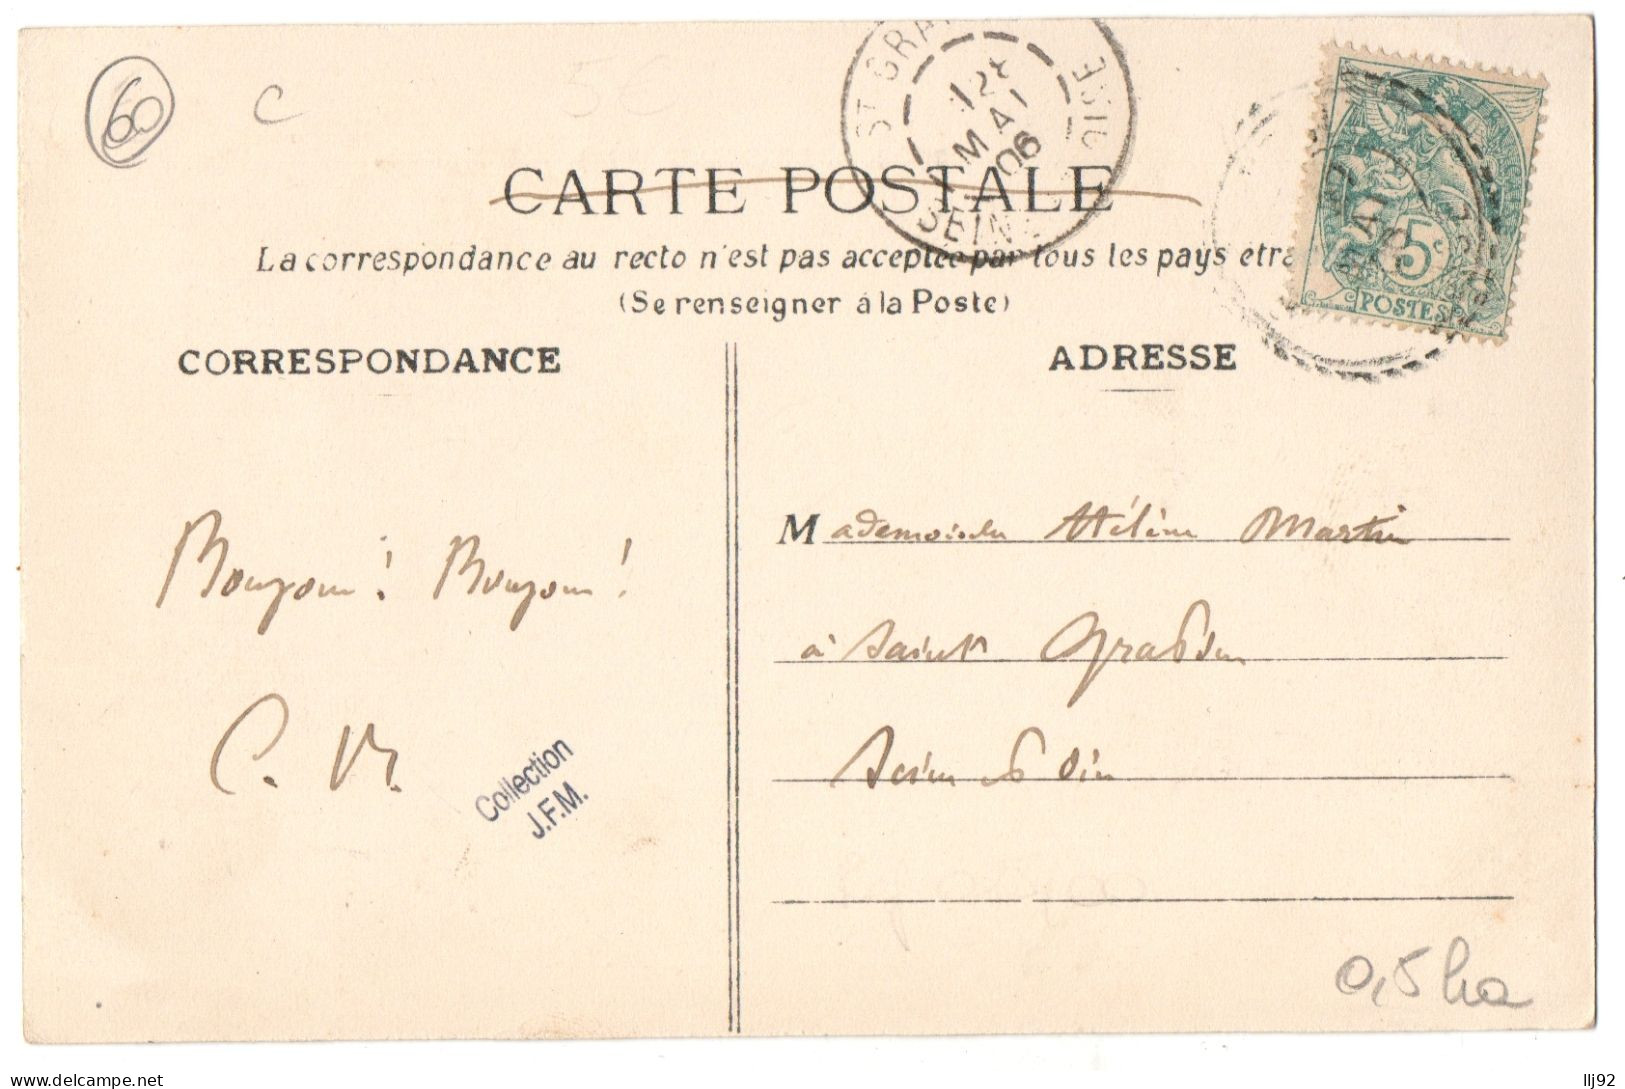 60
C
5€
ST GRA
28
MAI
06
SEINE
CARTE POSTALE
La correspondance au recto n'est pas acceptée par tous les pays étra
(Se renseigner à la Poste)
FRANÇAISE
5c
POSTES
CORRESPONDANCE
ADRESSE
Mademoiselle Hélène Martin
Bonjour! Bonjour!
à Saint Gratien
C. M.
Seine et Oise
Collection
J.F.M.
0,5 ha
delcampe.net
llj92